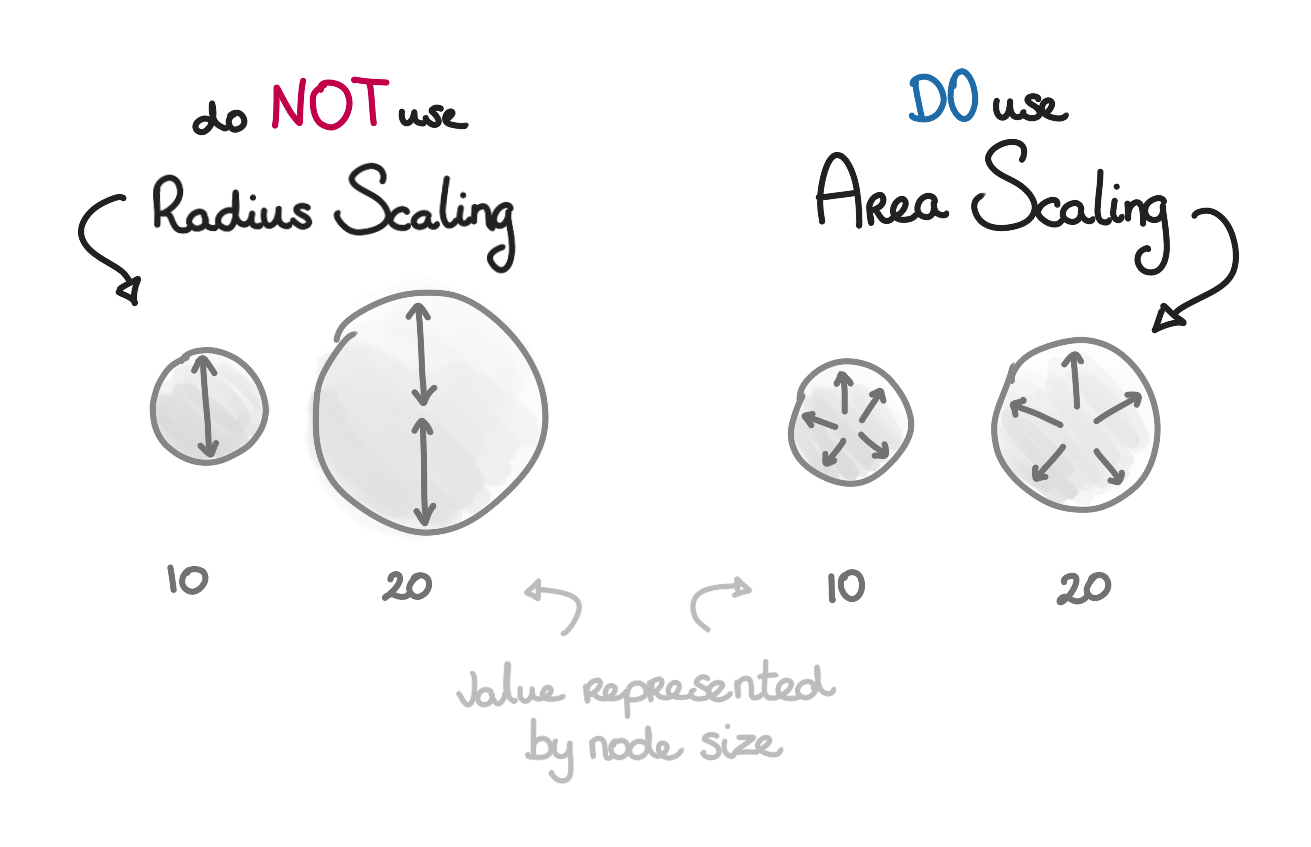 do NOT use
Radius Scaling
10
20
DO use
Area Scaling
10
20
value represented
by node size